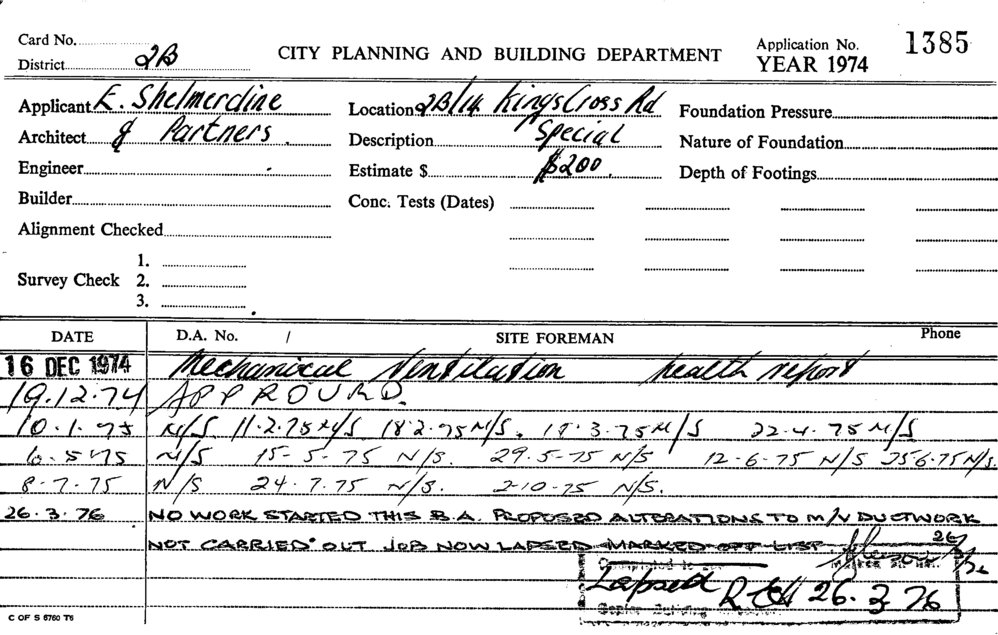 Card No.
District 2B
CITY PLANNING AND BUILDING DEPARTMENT
Application No. 1385
YEAR 1974
Applicant E. Shelmerdine
Architect & Partners
Engineer
Builder
Alignment Checked
Survey Check 1.
2.
3.
Location 2B/14 Kings Cross Rd
Description Special
Estimate $ $200.
Conc. Tests (Dates)
Foundation Pressure
Nature of Foundation
Depth of Footings
DATE D.A. No. / SITE FOREMAN Phone
16 DEC 1974 Mechanical Ventilation health report
19.12.74 APPROVED.
10.1.75 N/S 11.2.75 N/S 18.2.75 N/S. 18.3.75 N/S 22.4.75 N/S
6.5.75 N/S 15-5-75 N/S. 29.5-75 N/S 12-6-75 N/S 25.6.75 N/S.
8-7-75 N/S 24.7.75 N/S. 2-10-75 N/S.
26.3.76 NO WORK STARTED THIS B.A. PROPOSED ALTERATIONS TO M/V DUCTWORK
NOT CARRIED OUT JOB NOW LAPSED MARKED OFF LIST. 26/3/76
Completed to
Lapsed
26.3.76
C OF S 6760 T6